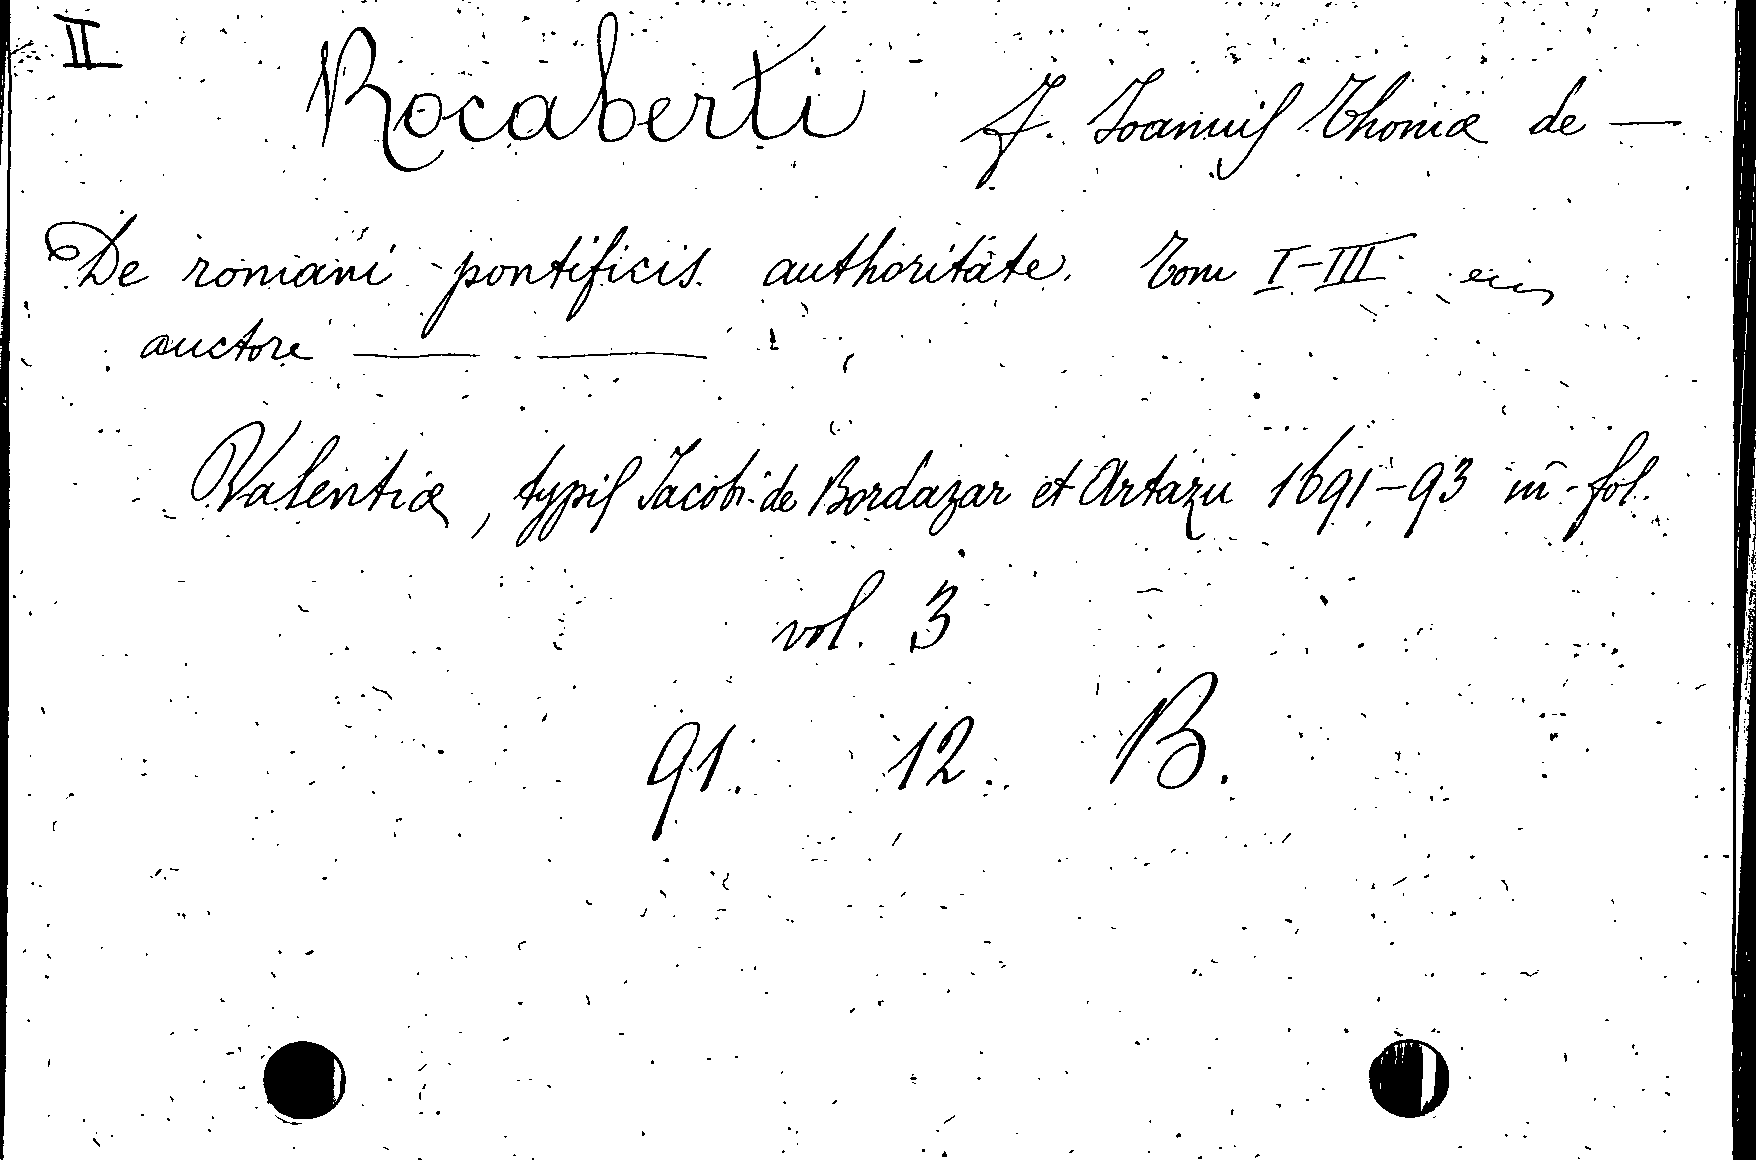 II
Rocaberti F. Ioannis Thomæ de —
De romani pontificis authoritate. Tom I-III
auctore — —
Valentiæ, typis Jacobi de Bordazar et Artazu 1691-93 in-fol.
vol. 3
91. 12. B.